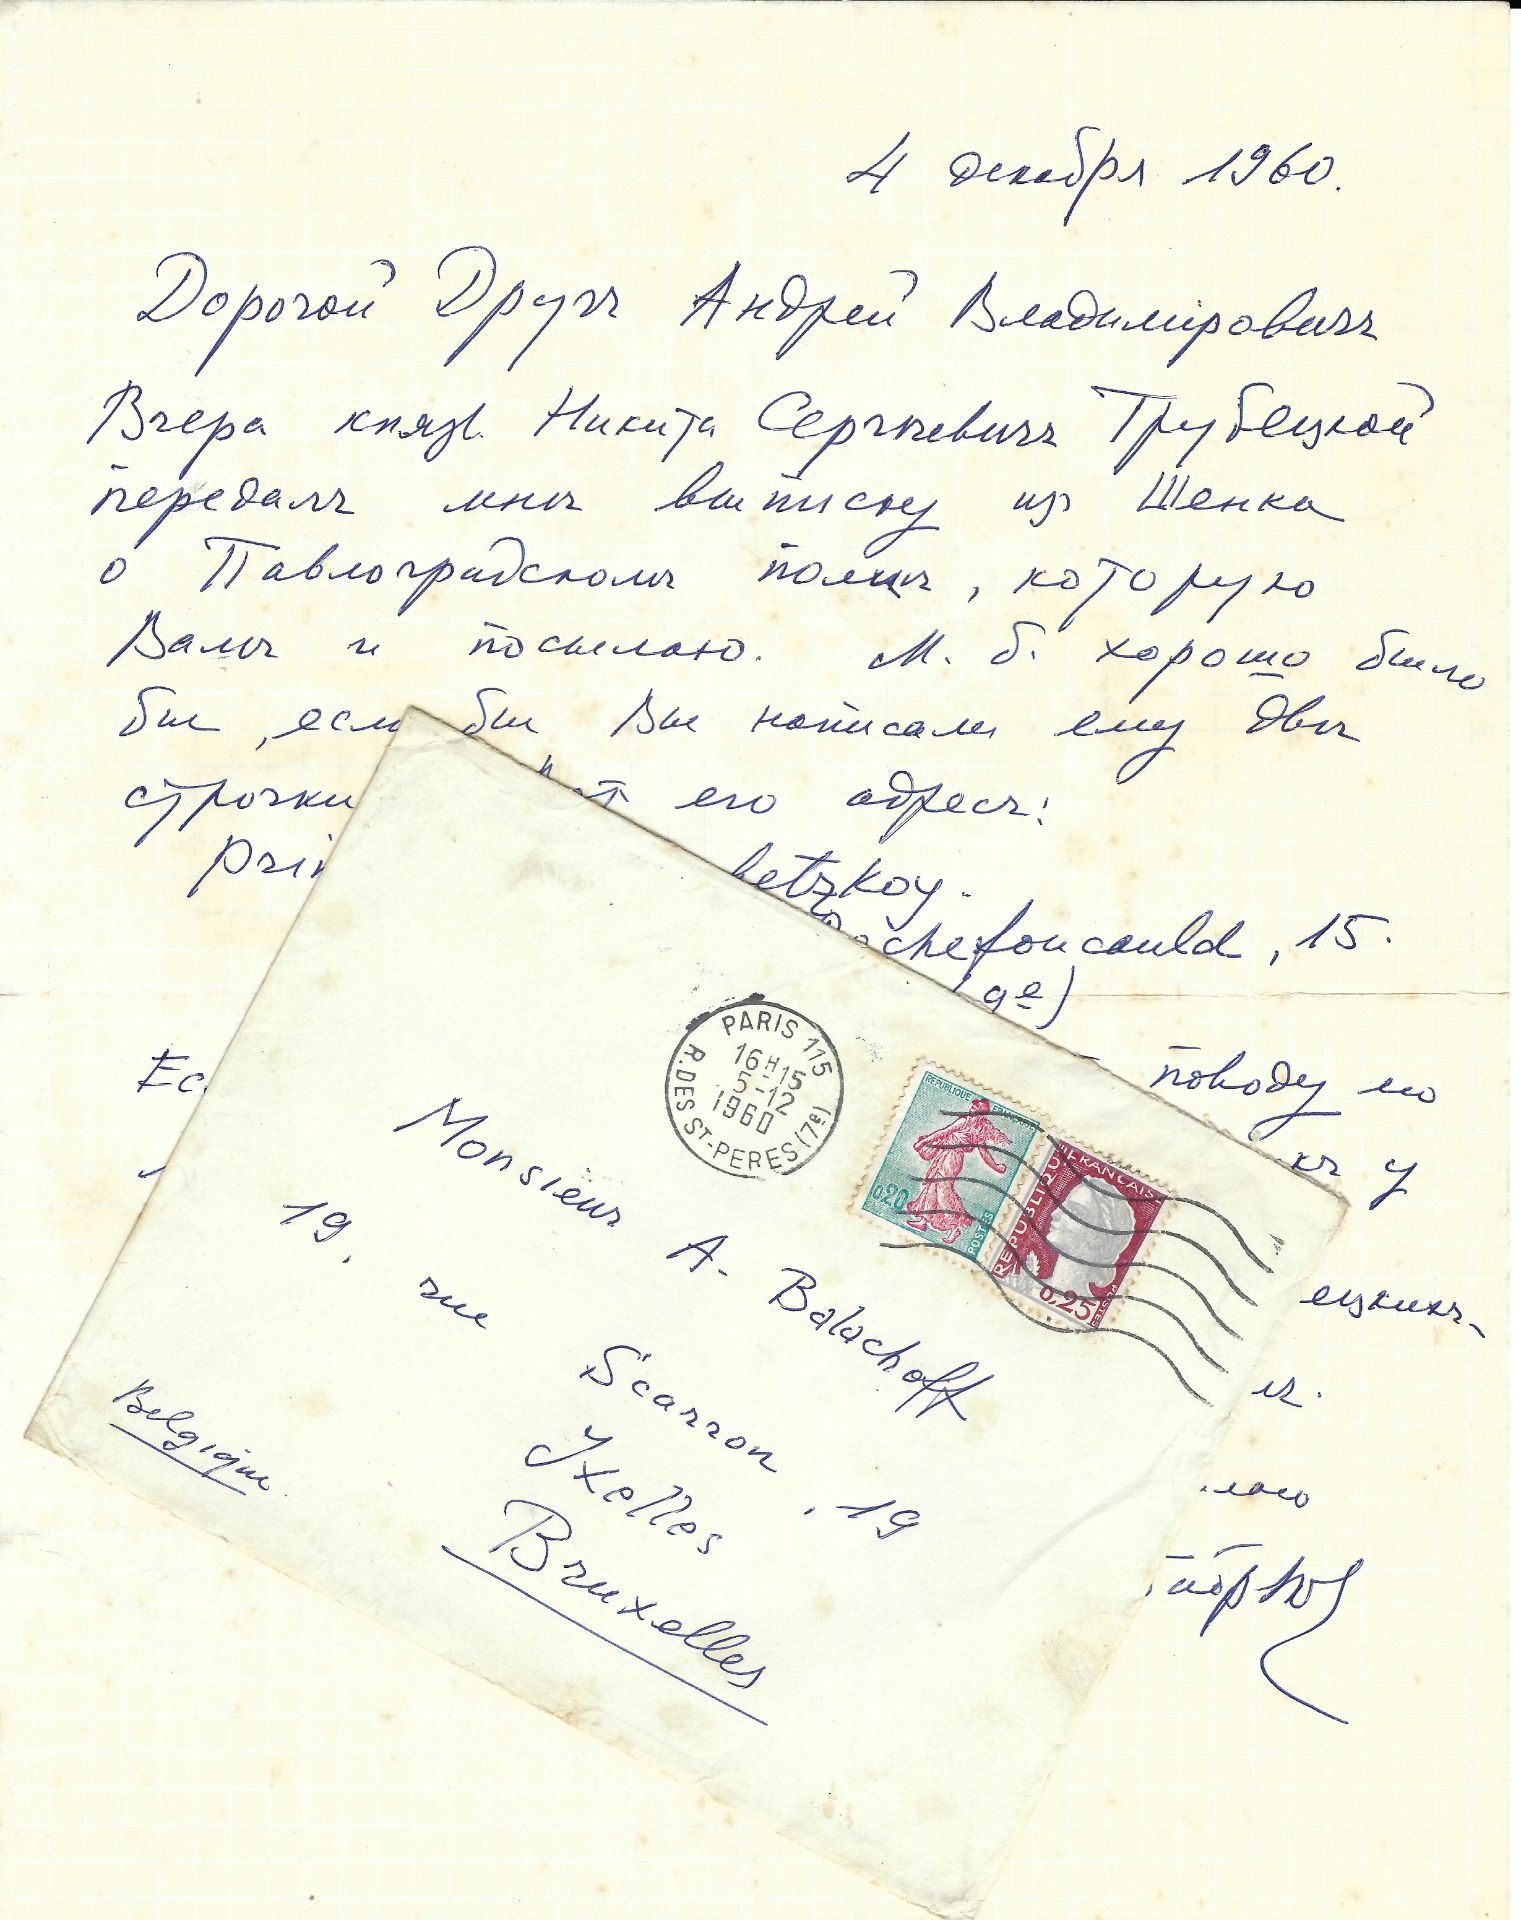 4 декабря 1960.
Дорогой Другъ Андрей Владиміровичъ
Вчера князь Никита Сергѣевичъ Трубецкой
передалъ мнѣ выписку изъ Шенка
о Павлоградскомъ полку, которую
Вамъ и посылаю. М. б. хорошо было
бы, если бы Вы написали ему двѣ
строчки его адресъ:
betzkoy.
Rochefoucauld, 15.
(9e)
поводу
у
PARIS 115
16H15
5-12
1960
R. DES ST-PERES (7e)
REPUBLIQUE FRANCAISE
0,20
POSTES
REPUBLIQUE FRANCAISE
0,25
POSTES
Monsieur A. Balachoff
19, rue Scarron, 19
Ixelles
Bruxelles
Belgique